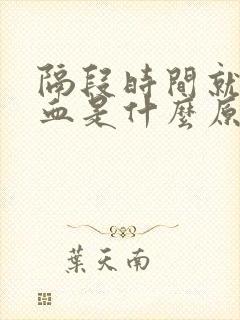 隔段時間就
血是什麼原
葉天南